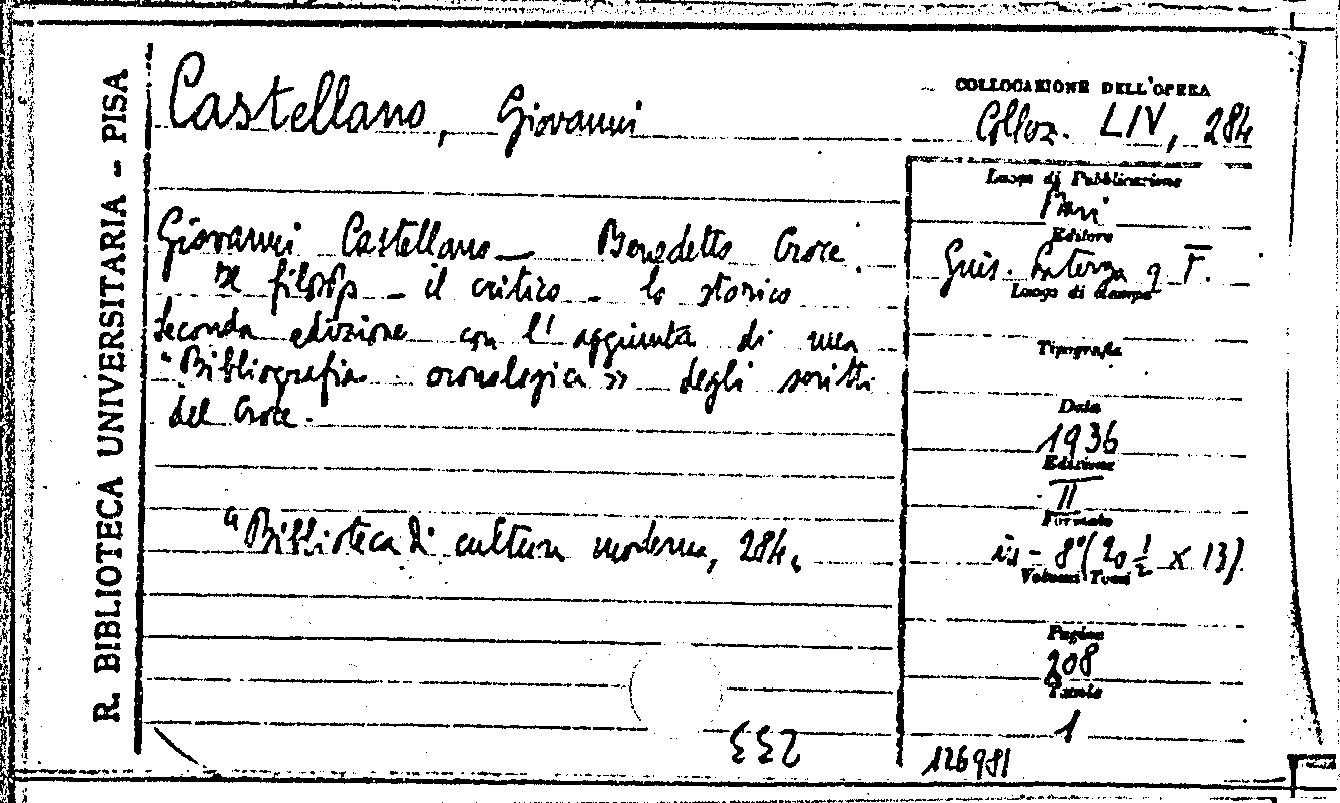 R. BIBLIOTECA UNIVERSITARIA - PISA
Castellano, Giovanni
COLLOCAZIONE DELL'OPERA
Colloz. LIV, 284
Giovanni Castellano — Benedetto Croce.
Il filosofo - il critico - lo storico
Seconda edizione con l'aggiunta di una
"Bibliografia cronologica» degli scritti
del Croce.
"Biblioteca di cultura moderna, 284.
Luogo di Pubblicazione
Bari
Editore
Gius. Laterza e F.
Luogo di stampa
Tipografia
Data
1936
Edizione
II
Formato
in-8°(20 1/2 x 13)
Volumi Tomi
Pagine
208
Tavole
1
126981